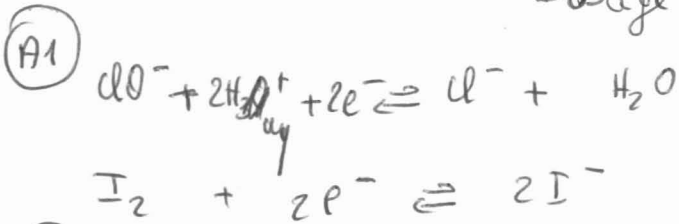 A1
ClO⁻ + 2H⁺ + 2e⁻ ⇌ Cl⁻ + H₂O
I₂ + 2e⁻ ⇌ 2I⁻